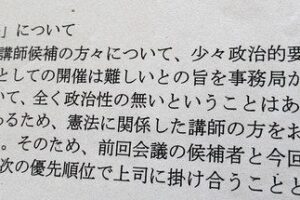 」について
講師候補の方々について、少々政治的要
としての開催は難しいとの旨を事務局か
いて、全く政治性の無いということはあ
あるため、憲法に関係した講師の方をお
。そのため、前回会議の候補者と今回
次の優先順位で上司に掛け合うことと